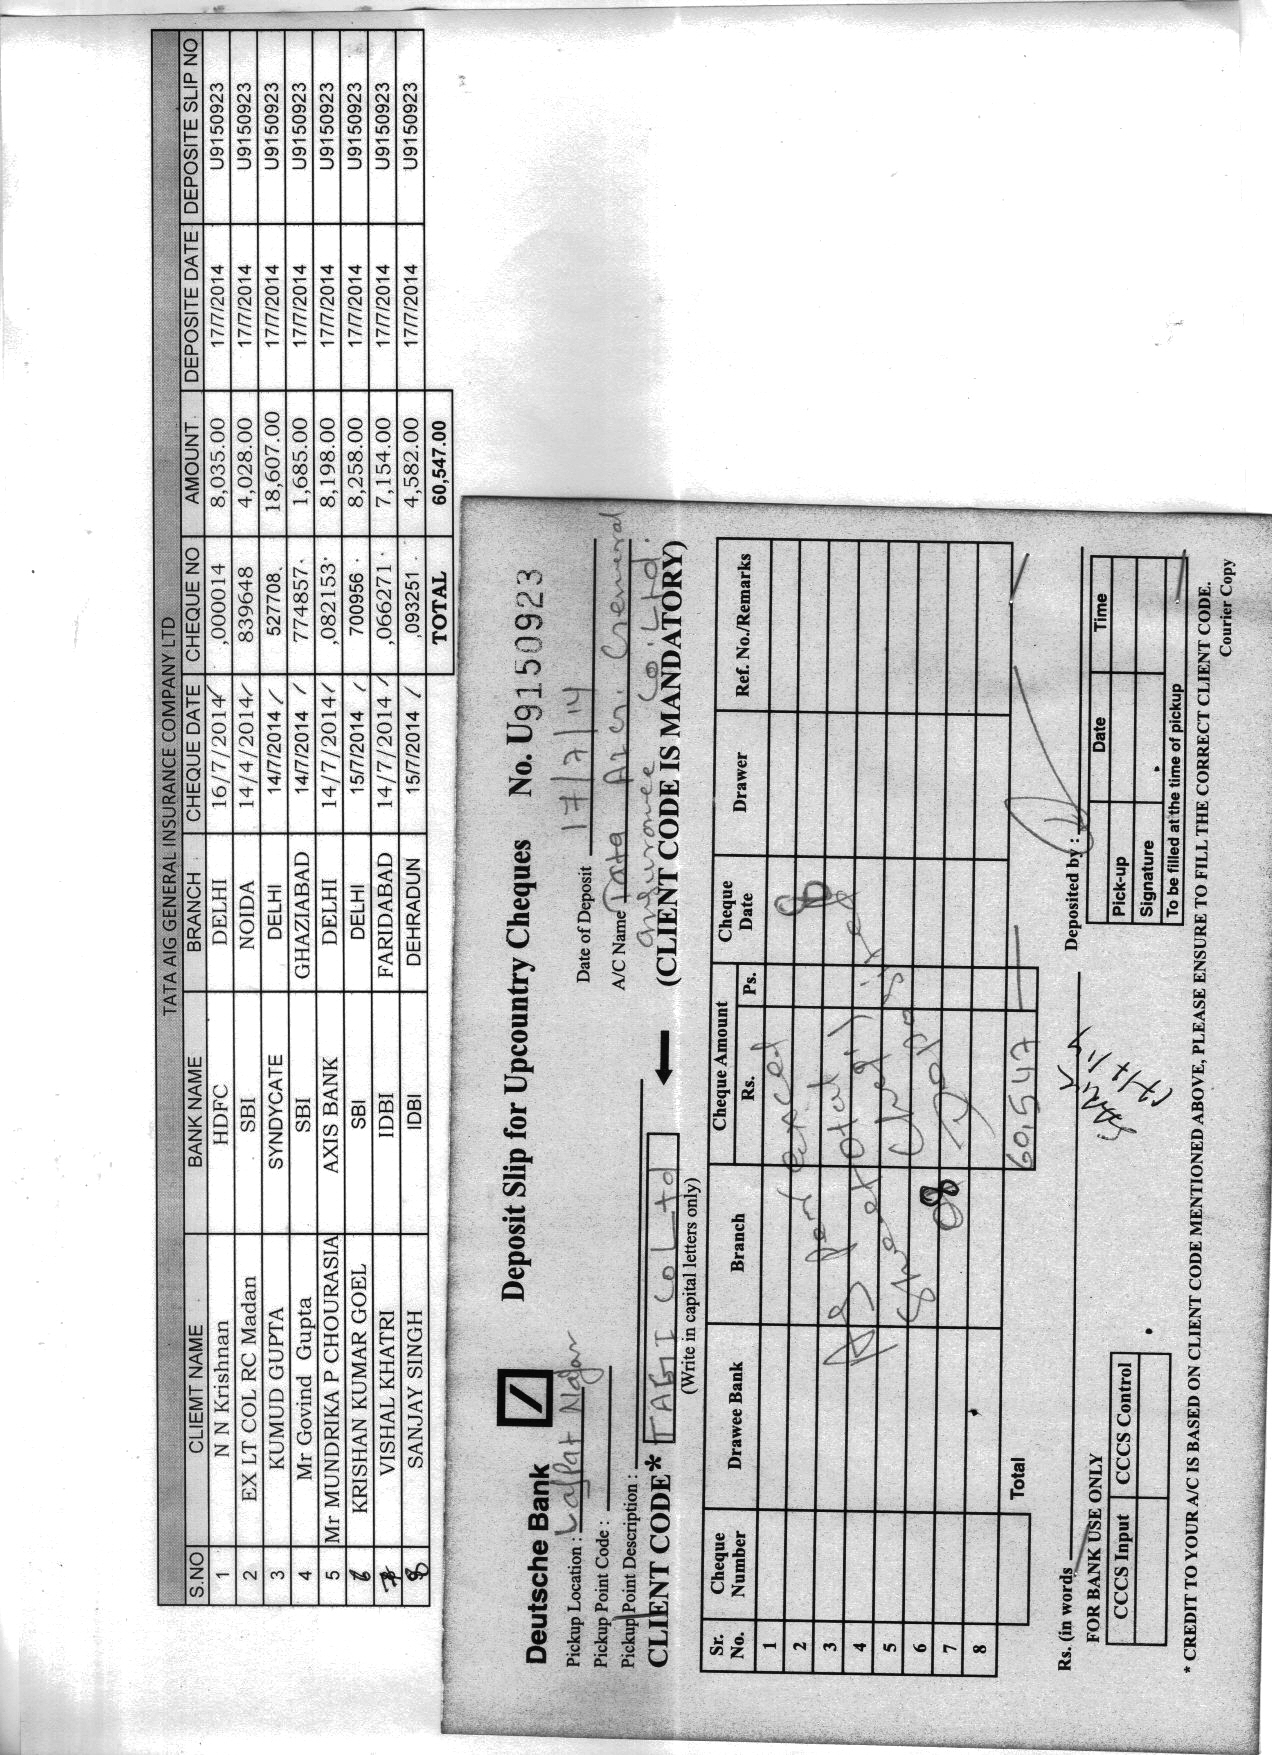 TATA AIG GENERAL INSURANCE COMPANY LTD
S.NO CLIEMT NAME BANK NAME BRANCH CHEQUE DATE CHEQUE NO AMOUNT DEPOSITE DATE DEPOSITE SLIP NO
1 N N Krishnan HDFC DELHI 16/7/2014 ,000014 8,035.00 17/7/2014 U9150923
2 EX LT COL RC Madan SBI NOIDA 14/4/2014 839648 4,028.00 17/7/2014 U9150923
3 KUMUD GUPTA SYNDYCATE DELHI 14/7/2014 527708. 18,607.00 17/7/2014 U9150923
4 Mr Govind Gupta SBI GHAZIABAD 14/7/2014 774857. 1,685.00 17/7/2014 U9150923
5 Mr MUNDRIKA P CHOURASIA AXIS BANK DELHI 14/7/2014 ,082153. 8,198.00 17/7/2014 U9150923
6 KRISHAN KUMAR GOEL SBI DELHI 15/7/2014 700956. 8,258.00 17/7/2014 U9150923
7 VISHAL KHATRI IDBI FARIDABAD 14/7/2014 ,066271. 7,154.00 17/7/2014 U9150923
8 SANJAY SINGH IDBI DEHRADUN 15/7/2014 ,093251. 4,582.00 17/7/2014 U9150923
TOTAL 60,547.00
Deutsche Bank Deposit Slip for Upcountry Cheques No. U9150923
Pickup Location : Lajpat Nagar Date of Deposit 17/7/14
Pickup Point Code : A/C Name Tata AIG General
Pickup Point Description : Insurance Co. Ltd.
CLIENT CODE* TAGI Co Ltd (CLIENT CODE IS MANDATORY)
(Write in capital letters only)
Sr. No. Cheque Number Drawee Bank Branch Cheque Amount Rs. Ps. Cheque Date Drawer Ref. No./Remarks
1
2
3
4
5
6
7
8
As per excel
08
Total 60,547
Rs. (in words Deposited by :
17/7/14
FOR BANK USE ONLY
CCCS Input CCCS Control
Date Time
Pick-up
Signature
To be filled at the time of pickup
* CREDIT TO YOUR A/C IS BASED ON CLIENT CODE MENTIONED ABOVE, PLEASE ENSURE TO FILL THE CORRECT CLIENT CODE.
Courier Copy